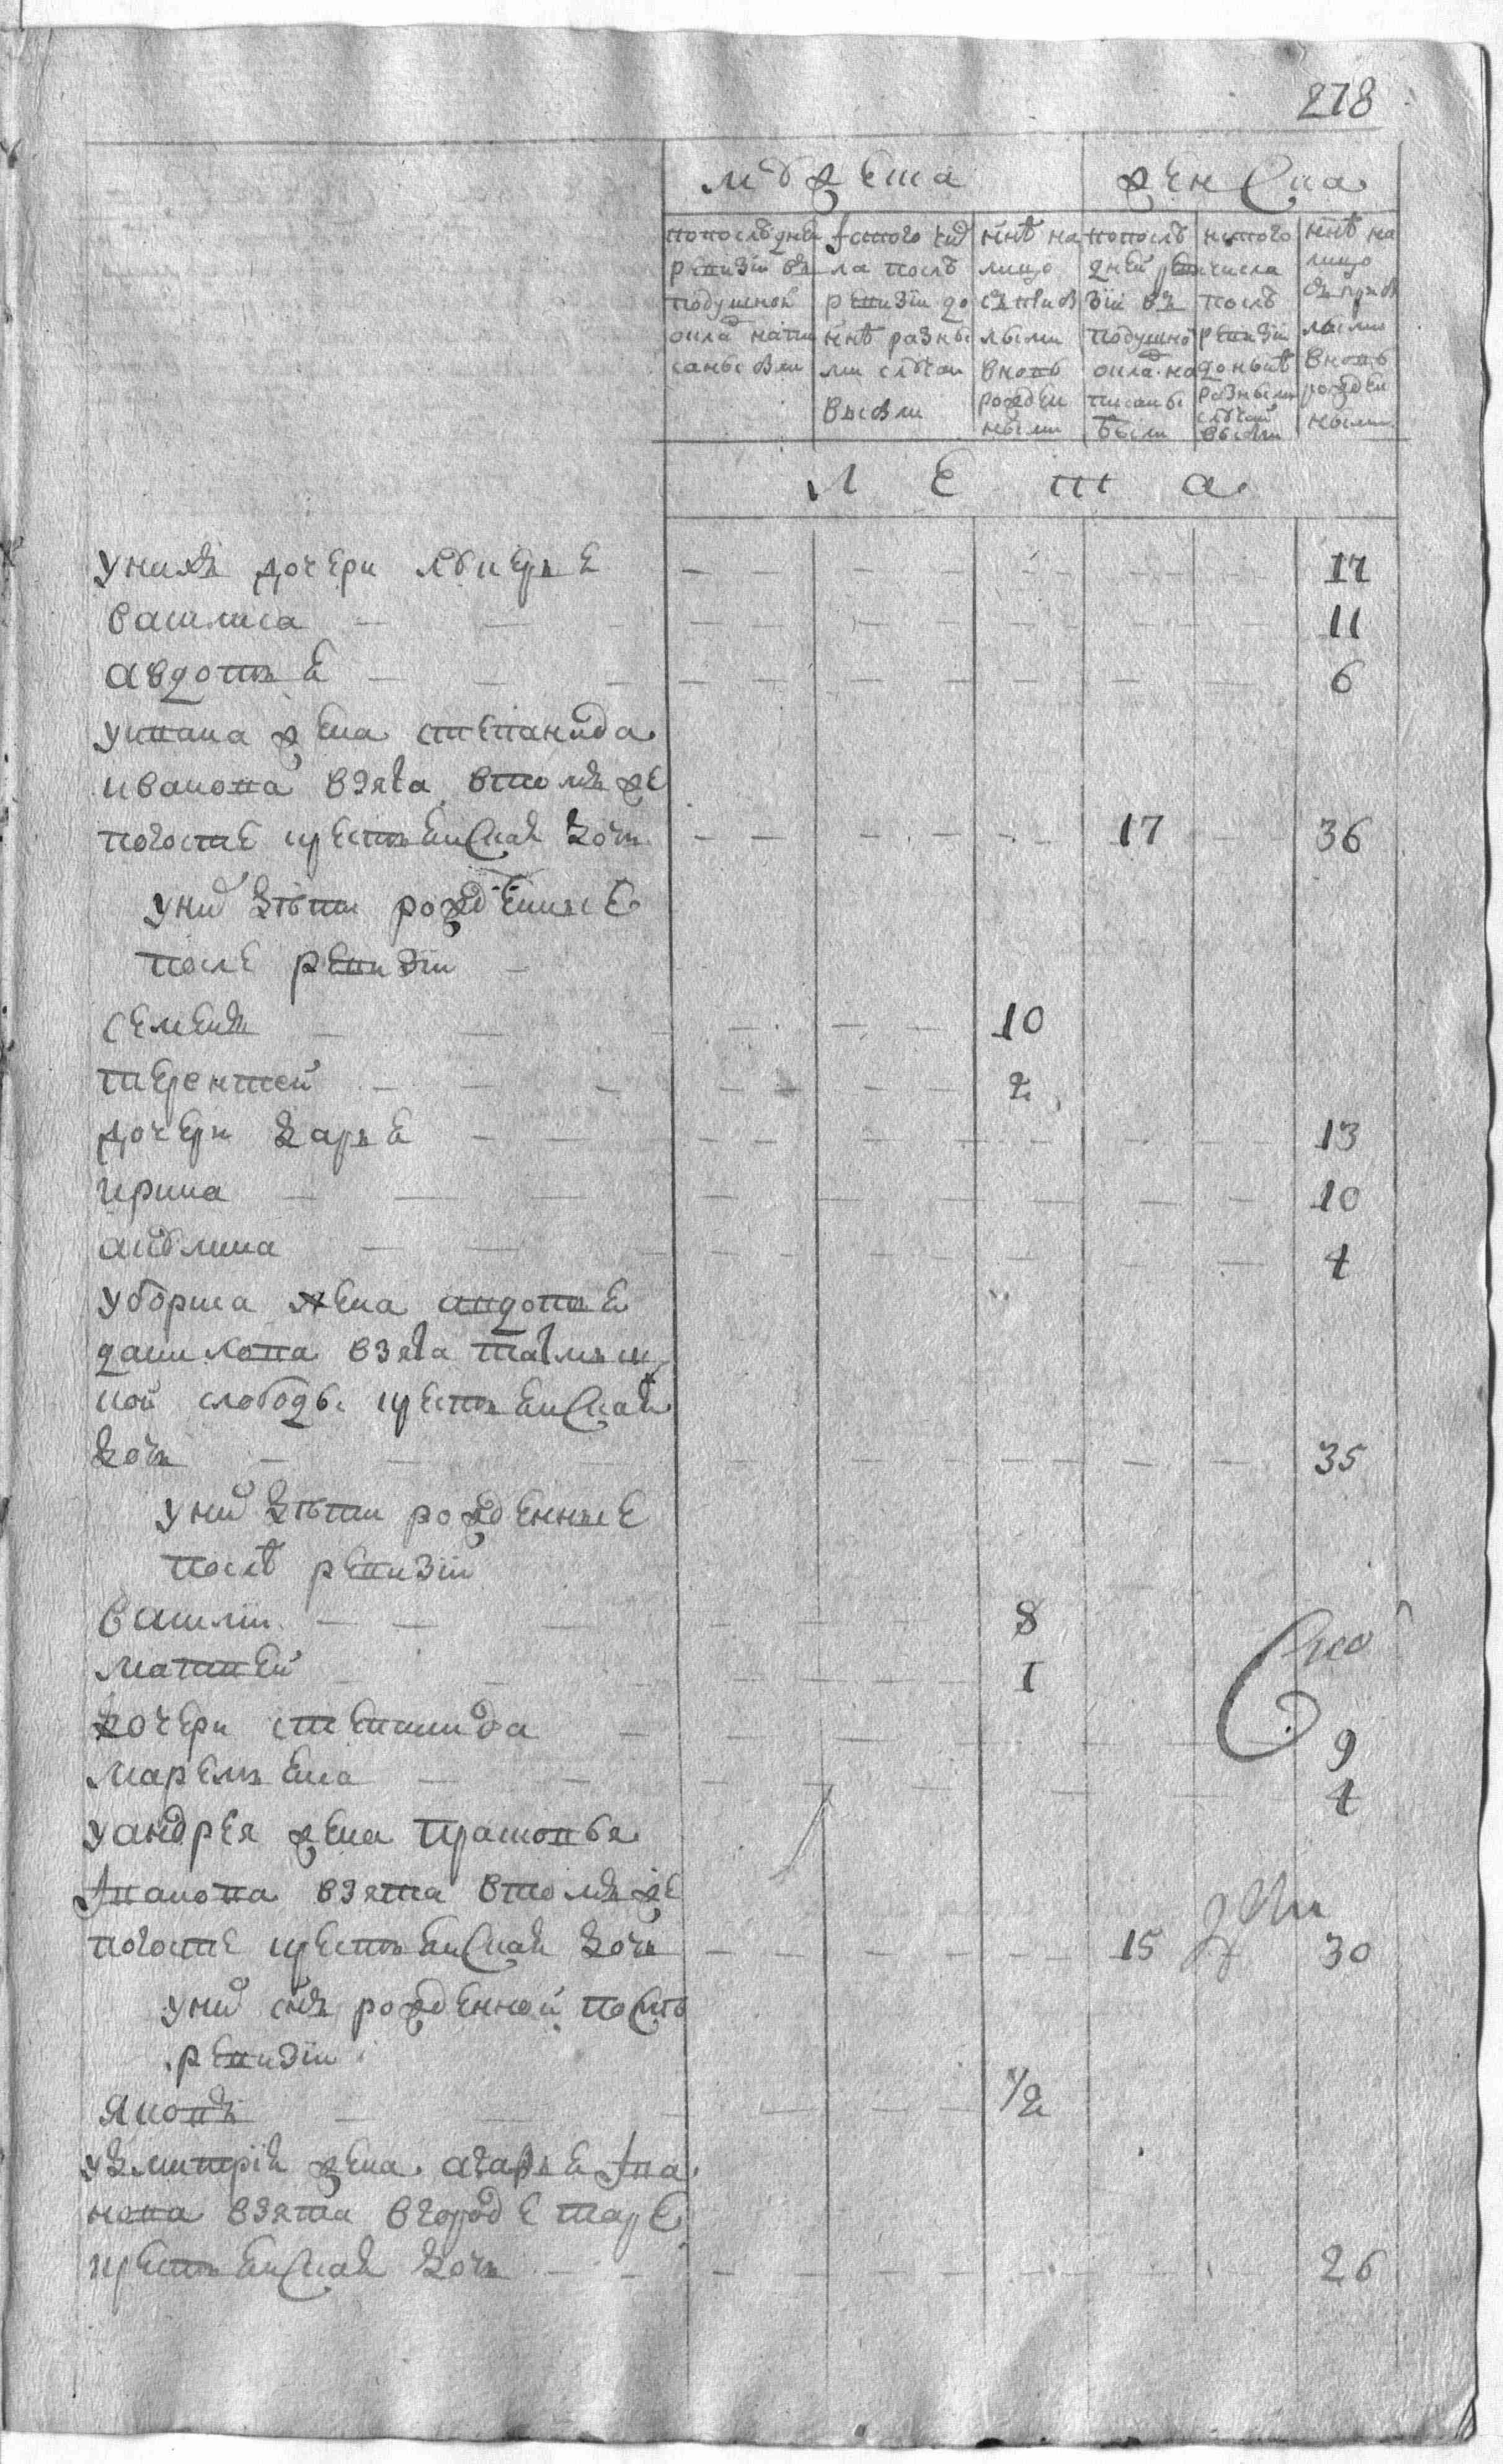 278
мужеска женска
попоследней ревизіи въ подушной окладъ написаны были
ис того числа послѣ ревизіи до ннѣ разными случаи выбыли
ннѣ на лицо съ прибылыми вновь рожденными
попоследней ревизіи въ подушной окладъ написаны были
ис того числа послѣ ревизіи до ннѣ разными случаи выбыли
ннѣ на лицо съ прибылыми вновь рожденными
лета
у нихъ дочери лукерья 17
василиса 11
авдотья 6
у ивана жена степанида
иванова взята в томъ же
погосте крестьянская дочь 17 36
у них дѣти рожденные
после ревизіи
семенъ 10
терентей 2
дочери дарья 13
ирина 10
акулина 4
у бориса жена авдотья
данилова взята
кой слободы крестьянская
дочь 35
у них дѣти рожденные
послѣ ревизіи
василіи 8
матвей 1
дочери степанида 9
маремьяна 4
у андрея жена прасковья
иванова взята в томъ же
погосте крестьянская дочь 15 30
у них снъ рожденной послѣ
ревизіи
яковъ 1/2
у дмитрія жена агафья ива
нова взята в городе таре
крестьянская дочь 26